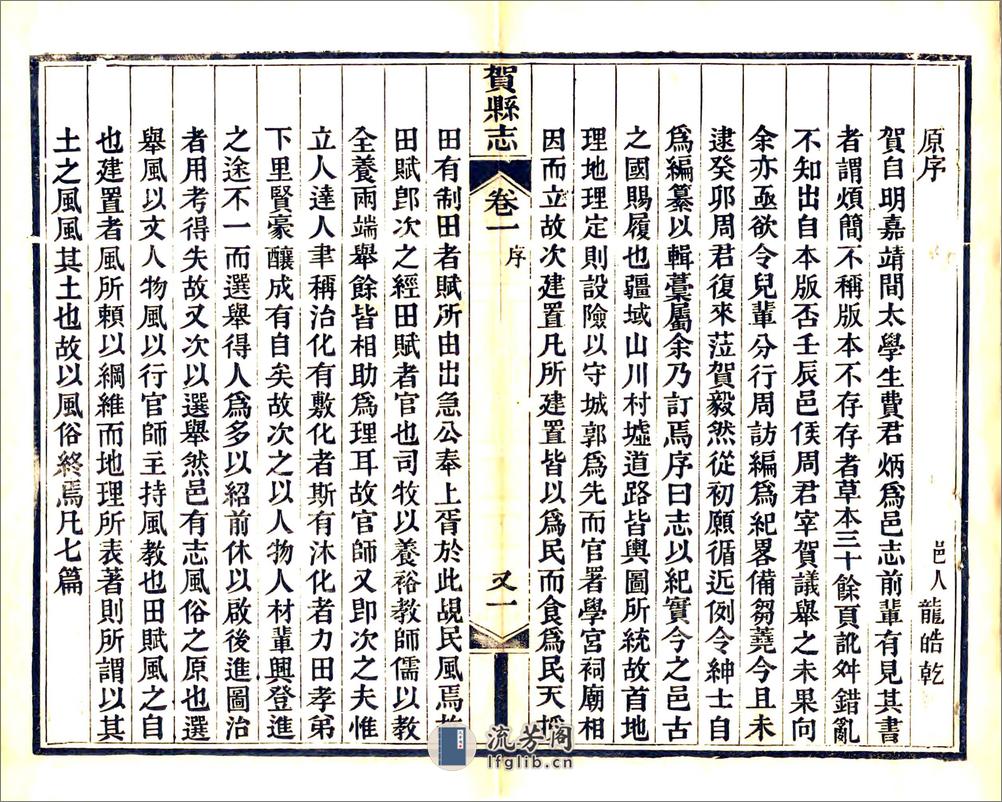 原序
邑人龍皓乾
賀自明嘉靖間太學生費君炳爲邑志前輩有見其書
者謂煩簡不稱版本不存存者草本三十餘頁訛舛錯亂
不知出自本版否壬辰邑侯周君宰賀議舉之未果向
余亦亟欲令兒輩分行周訪編爲紀畧備芻蕘今且未
逮癸卯周君復來蒞賀毅然從初願循近例令紳士自
爲編纂以輯藁屬余乃訂焉序曰志以紀實今之邑古
之國賜履也疆域山川村墟道路皆輿圖所統故首地
理地理定則設險以守城郭爲先而官署學宮祠廟相
因而立故次建置凡所建置皆以爲民而食爲民天授
賀縣志
卷一
序
又一
田有制田者賦所由出急公奉上胥於此覘民風焉故
田賦卽次之經田賦者官也司牧以養裕教師儒以教
全養兩端舉餘皆相助爲理耳故官師又卽次之夫惟
立人達人聿稱治化有敷化者斯有沐化者力田孝弟
下里賢豪釀成有自矣故次之以人物人材輩興登進
之途不一而選舉得人爲多以紹前休以啟後進圖治
者用考得失故又次以選舉然邑有志風俗之原也選
舉風以文人物風以行官師主持風教也田賦風之自
也建置者風所頼以綱維而地理所表著則所謂以其
土之風風其土也故以風俗終焉凡七篇
流芳阁
lfglib.cn